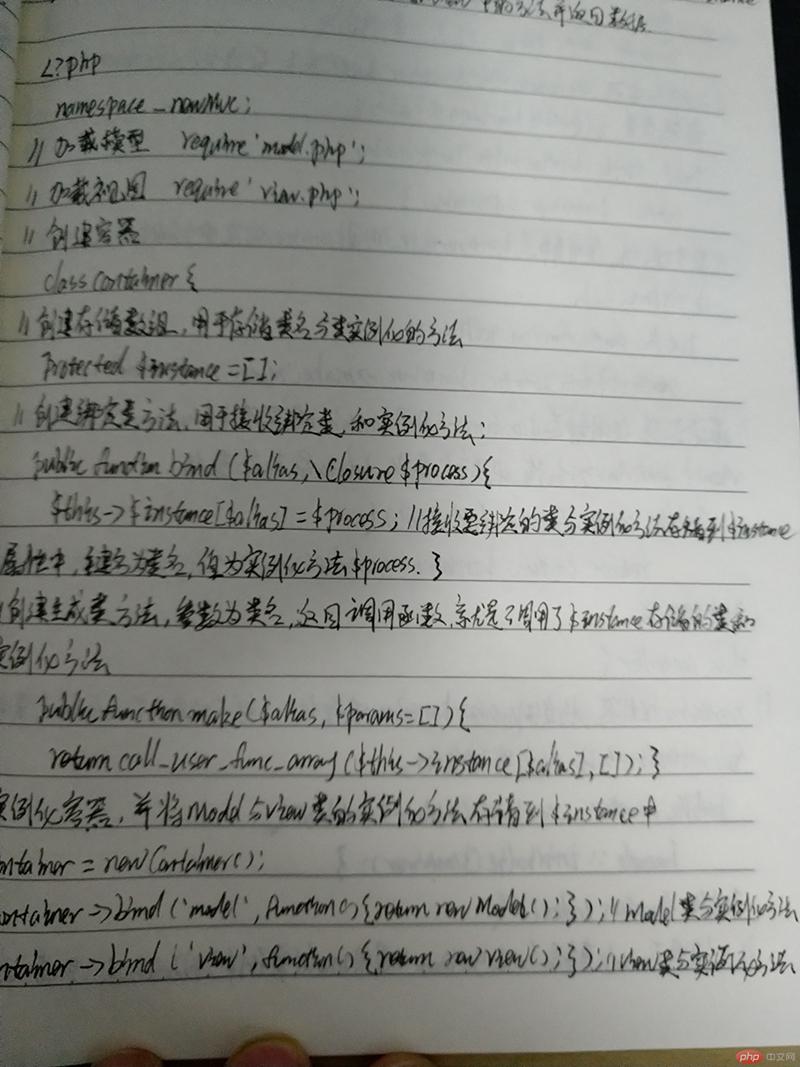 中的方法并返回数据.
<?php
namespace _newMvc;
// 加载模型 require 'model.php';
// 加载视图 require 'view.php';
// 创建容器
class container {
// 创建存储数组,用于存储类名与类实例化的方法
protected $instance = [];
// 创建绑定类方法,用于接收绑定类,和实例化方法;
public function bind ($alias, \Closure $process){
$this->$instance[$alias] = $process; //接收要绑定的类与实例化方法存储到$instance
属性中,键名为类名,值为实例化方法$process. }
/创建生成类方法,参数为类名,返回调用函数,意思调用了$instance存储的类和
实例化方法
public function make($alias, $params=[]){
return call_user_func_array($this->instance[$alias], []); }
实例化容器,并将Model与View类的实例化方法存储到$instance中
ontainer = new Container();
ontainer -> bind ('model', function(){return new Model(); }); // Model类与实例化方法
ntainer -> bind ('view', function() {return new view(); }); //view类与实例化方法
php 中文网